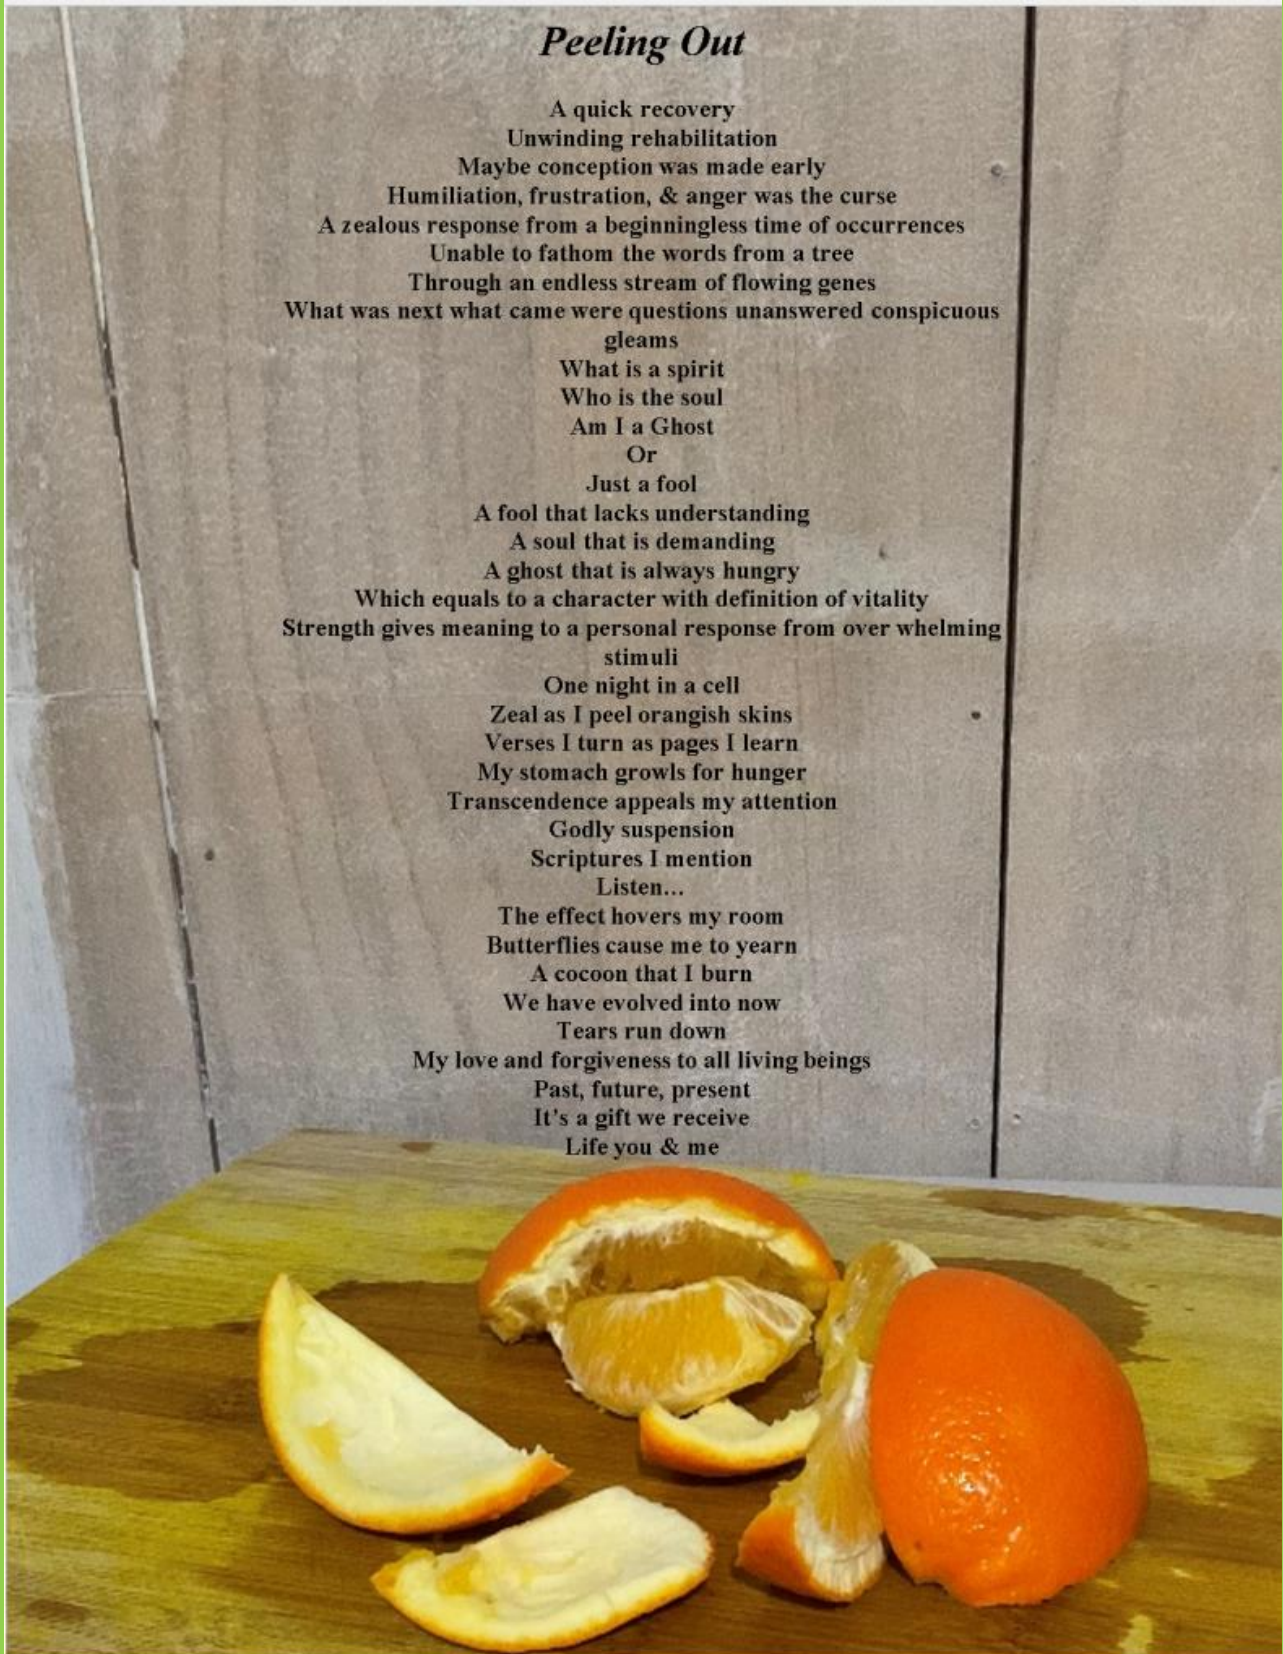 Peeling Out
A quick recovery
Unwinding rehabilitation
Maybe conception was made early
Humiliation, frustration, & anger was the curse
A zealous response from a beginningless time of occurrences
Unable to fathom the words from a tree
Through an endless stream of flowing genes
What was next what came were questions unanswered conspicuous
gleams
What is a spirit
Who is the soul
Am I a Ghost
Or
Just a fool
A fool that lacks understanding
A soul that is demanding
A ghost that is always hungry
Which equals to a character with definition of vitality
Strength gives meaning to a personal response from over whelming
stimuli
One night in a cell
Zeal as I peel orangish skins
Verses I turn as pages I learn
My stomach growls for hunger
Transcendence appeals my attention
Godly suspension
Scriptures I mention
Listen...
The effect hovers my room
Butterflies cause me to yearn
A cocoon that I burn
We have evolved into now
Tears run down
My love and forgiveness to all living beings
Past, future, present
It's a gift we receive
Life you & me